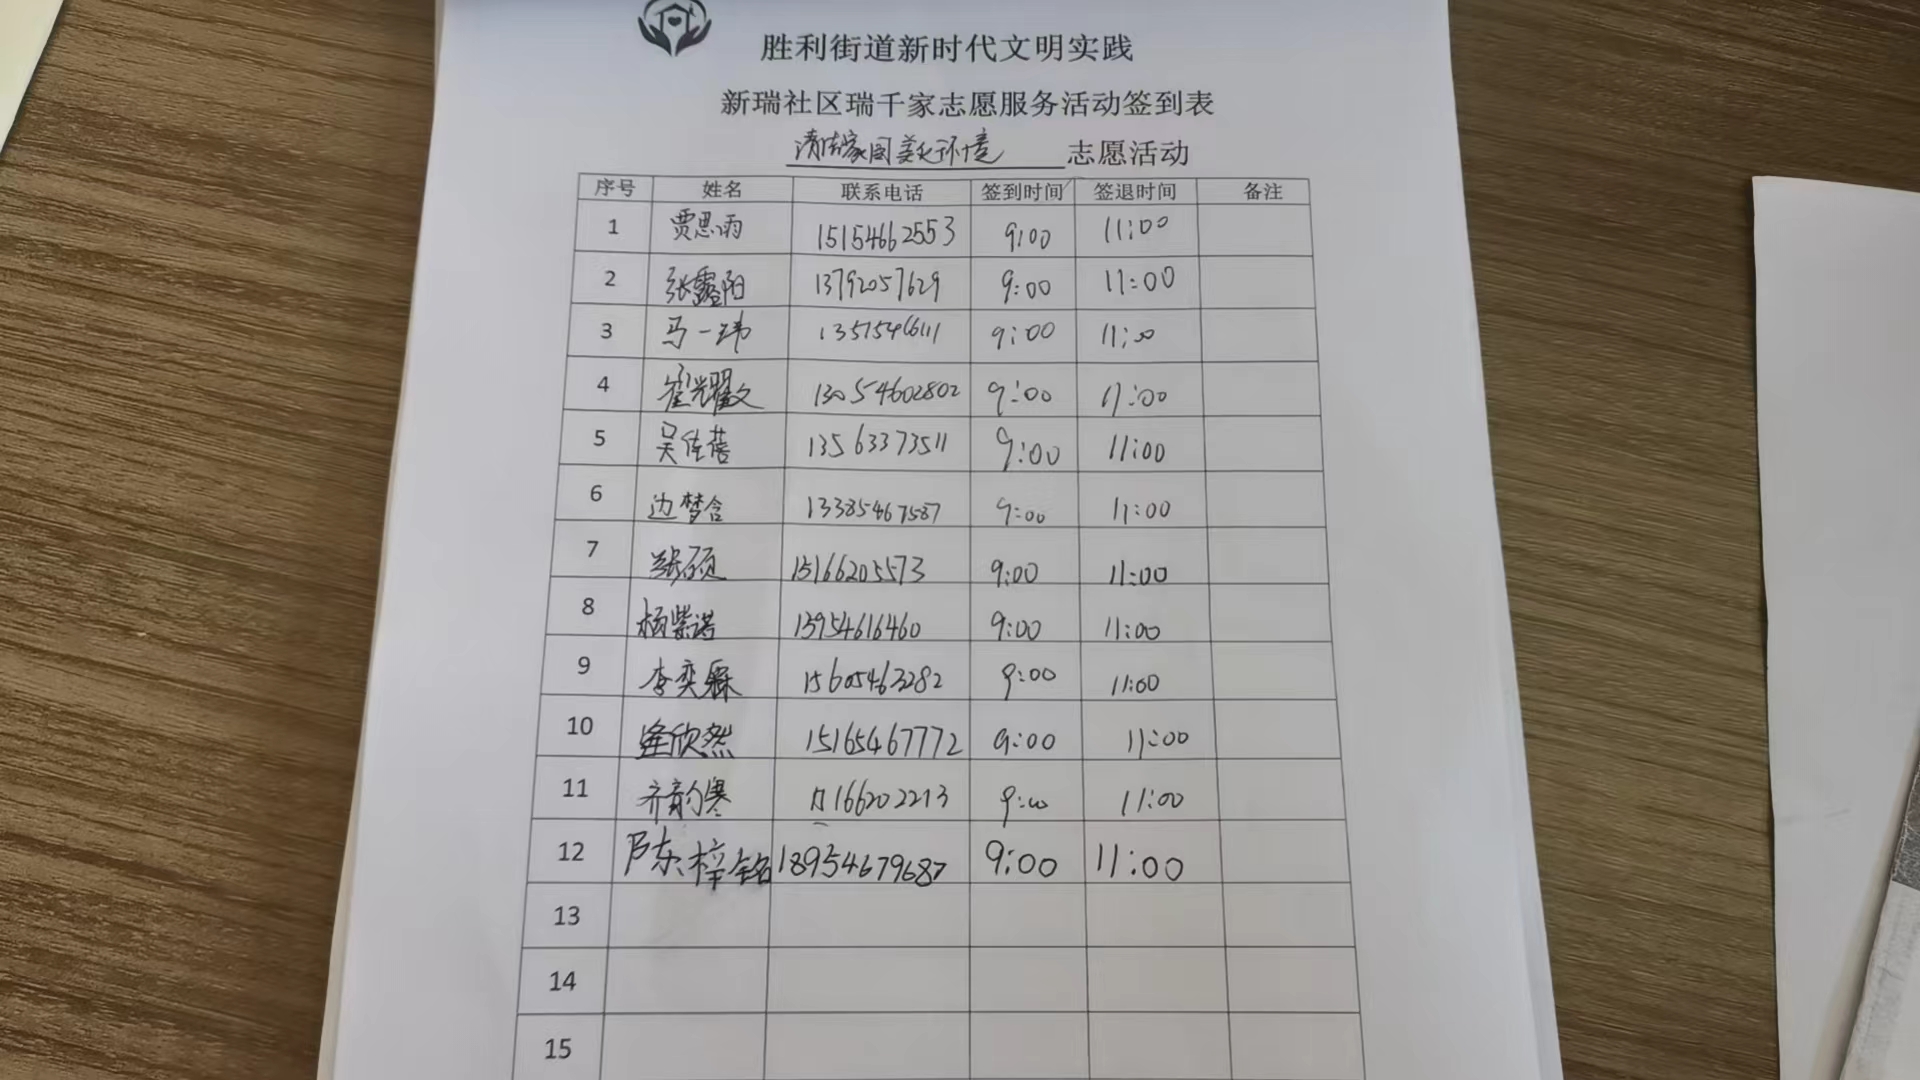 胜利街道新时代文明实践
新瑞社区瑞千家志愿服务活动签到表
清洁家园美化环境 志愿活动
序号 姓名 联系电话 签到时间 签退时间 备注
1 贾思雨 15154662553 9:00 11:00
2 张鑫阳 13792057629 9:00 11:00
3 马一玮 13575466111 9:00 11:00
4 崔耀文 13054602802 9:00 11:00
5 吴佳蓓 13563373511 9:00 11:00
6 边梦含 13385467587 9:00 11:00
7 张硕 15166205573 9:00 11:00
8 杨紫诺 13954616460 9:00 11:00
9 李奕霖 15605463282 9:00 11:00
10 逄欣然 15165467772 9:00 11:00
11 齐韵寒 166202213 9:00 11:00
12 陈梓铭 18954679687 9:00 11:00
13
14
15